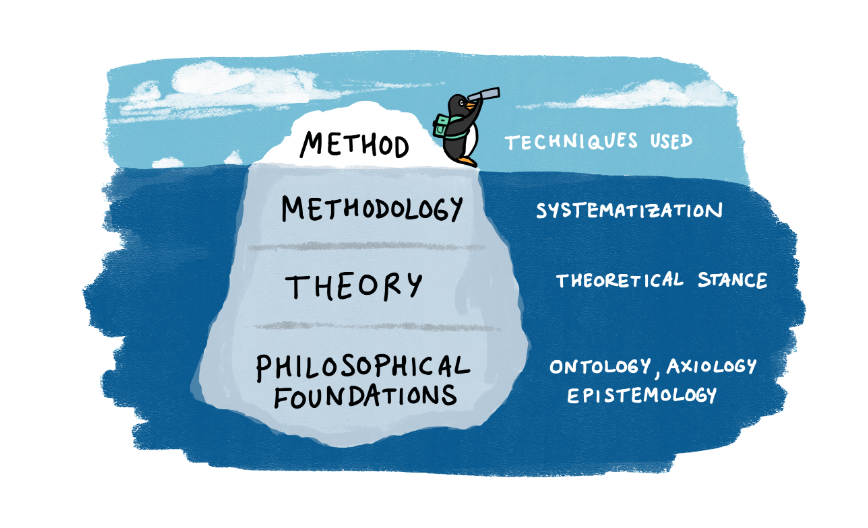 METHOD
TECHNIQUES USED
METHODOLOGY
SYSTEMATIZATION
THEORY
THEORETICAL STANCE
PHILOSOPHICAL
FOUNDATIONS
ONTOLOGY, AXIOLOGY
EPISTEMOLOGY